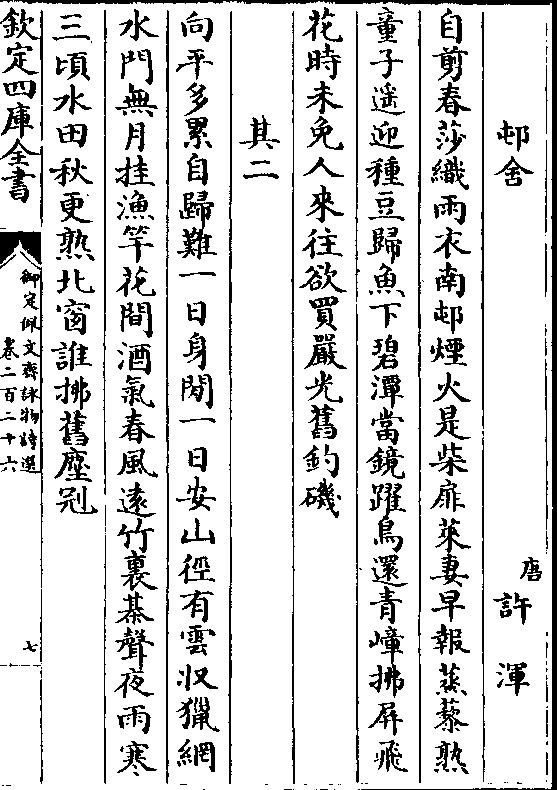 邨舍 唐 許渾
自剪春莎織雨衣南邨煙火是柴扉萊妻早報蒸藜熟
童子遙迎種豆歸魚下碧潭當鏡躍鳥還青嶂拂屏飛
花時未免人來往欲買嚴光舊釣磯
其二
向平多累自歸難一日身閒一日安山徑有雲收獵網
水門無月挂漁竿花間酒氣春風遠竹裏棊聲夜雨寒
三頃水田秋更熟北窗誰拂舊塵冠
欽定四庫全書
御定佩文齋詠物詩選
卷二百二十六
七